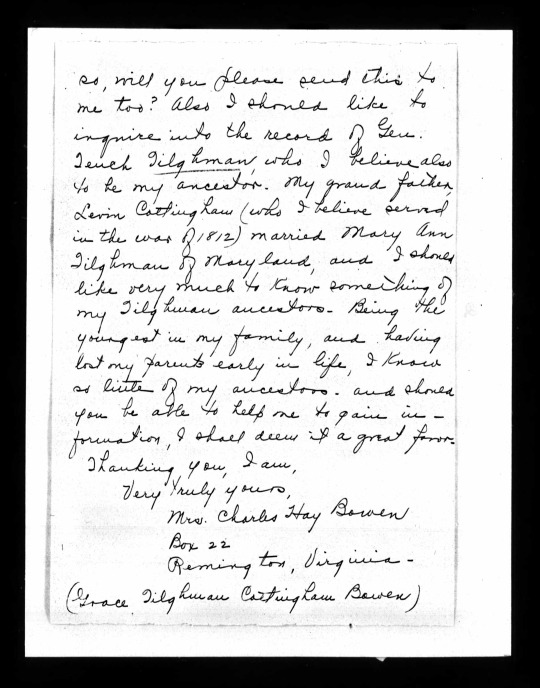 so, will you please send this to
me too? Also I should like to
inquire into the record of Gen.
Tench Tilghman, who I believe also
to be my ancestor. My grand father,
Levin Cottingham (who I believe served
in the war of 1812) married Mary Ann
Tilghman of Maryland, and I should
like very much to know something of
my Tilghman ancestors - Being the
youngest in my family, and having
lost my parents early in life, I know
so little of my ancestors - and should
you be able to help me to gain in -
formation, I shall deem it a great favor -
Thanking you, I am,
Very truly yours,
Mrs. Charles Hay Bowen
Box 22
Remington, Virginia -
(Grace Tilghman Cottingham Bowen)